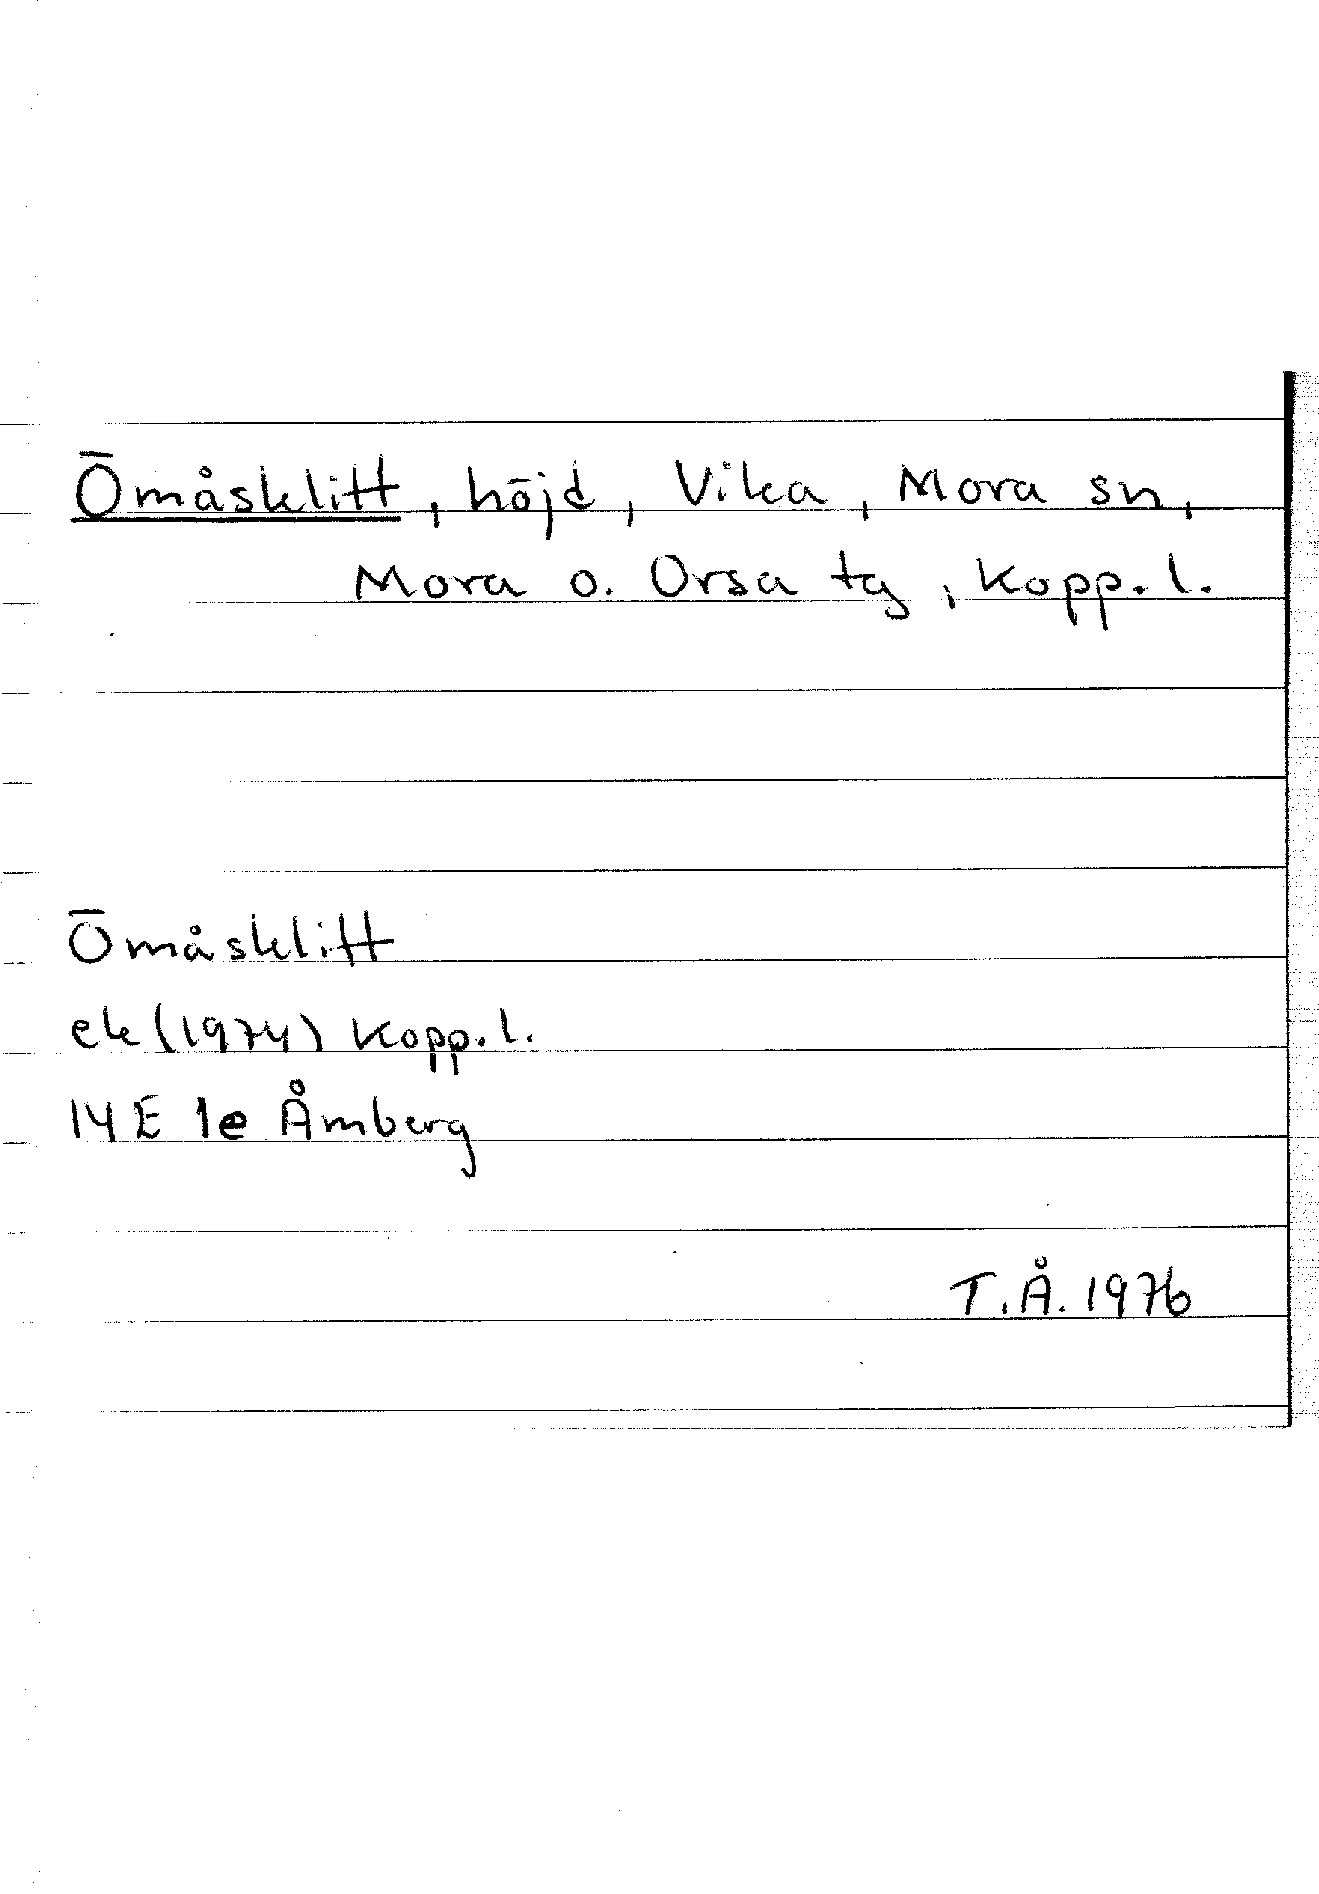 Ömåsklitt, höjd, Vika, Mora sn,
Mora o. Orsa tg, Kopp. l.
Ömåsklitt
ek (1974) Kopp. l.
14 E 1e Åmberg
T.Å. 1976